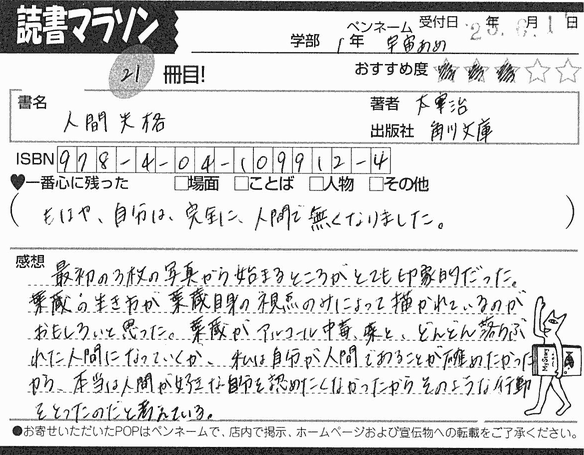 読書マラソン
学部 1年 ペンネーム 宇宙あめ 受付日 '23年6月1日
21 冊目! おすすめ度 ★★★☆☆
書名 人間失格 著者 太宰治
出版社 角川文庫
ISBN 978-4-04-109912-4
♥一番心に残った □場面 □ことば □人物 □その他
(もはや、自分は、完全に、人間で無くなりました。)
感想 最初の3枚の写真から始まるところがとても印象的だった。
葉蔵の生き方が葉蔵自身の視点のみによって描かれているのが
おもしろいと思った。葉蔵がアルコール中毒、薬と、どんどん落ちぶ
れた人間になっていくが、私は自分が人間であることが確めたかった
から、本当は人間が好きな自分を認めたくなかったからそのような行動
をとったのだと考えている。
●お寄せいただいたPOPはペンネームで、店内で掲示、ホームページおよび宣伝物への転載をご了承ください。